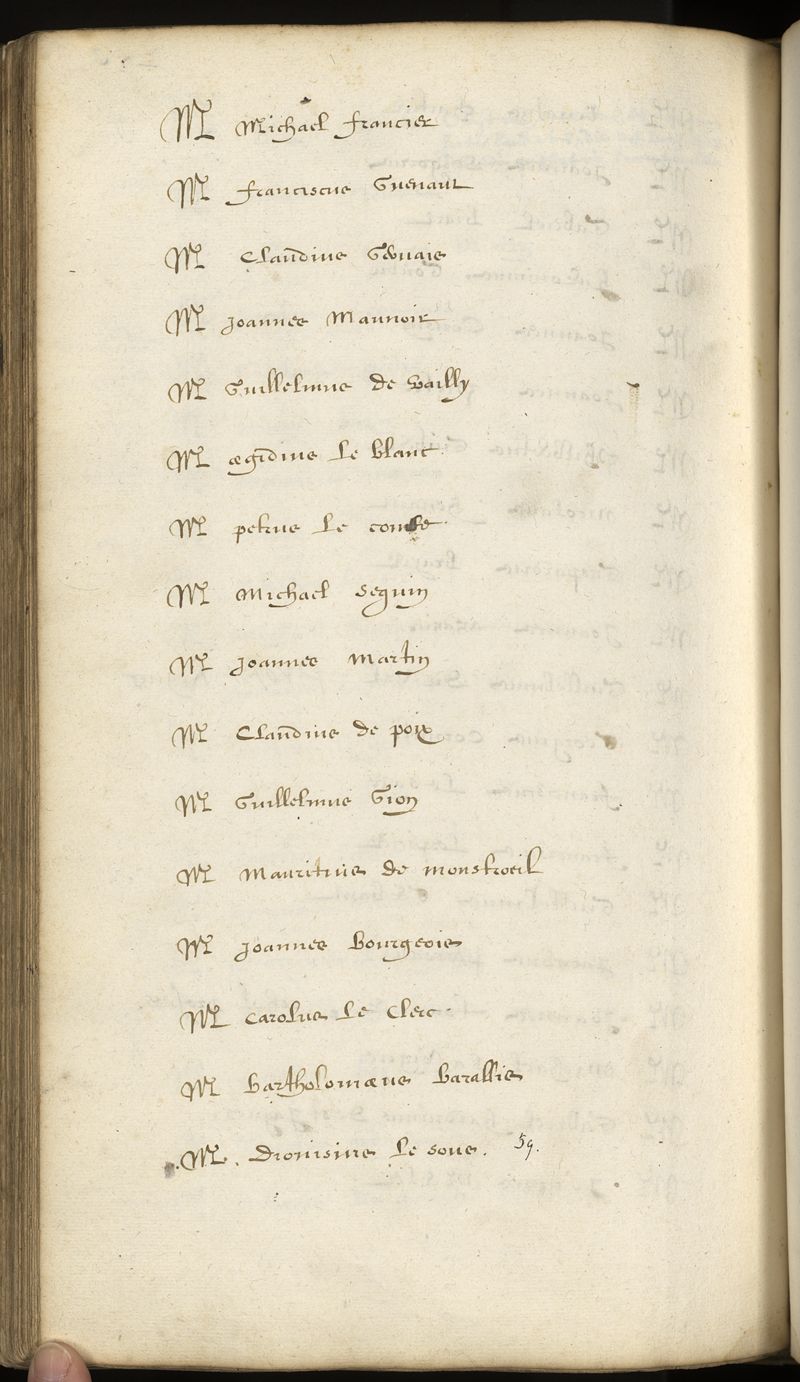 M Michael francier
M franciscus Guenaut
M Claudius Gervais
M Joannes Maunoir
M Guillelmus de vailly
M ægidius le blanc
M petrus le comte
M Michael seguin
M Joannes Martin
M Claudius de poix
M Guillelmus Gion
M Mauritius de monstroeil
M Joannes Bourgeois
M Carolus le Clerc
M Bartholomæus Barallis
M. Dionisius le soue. 59.